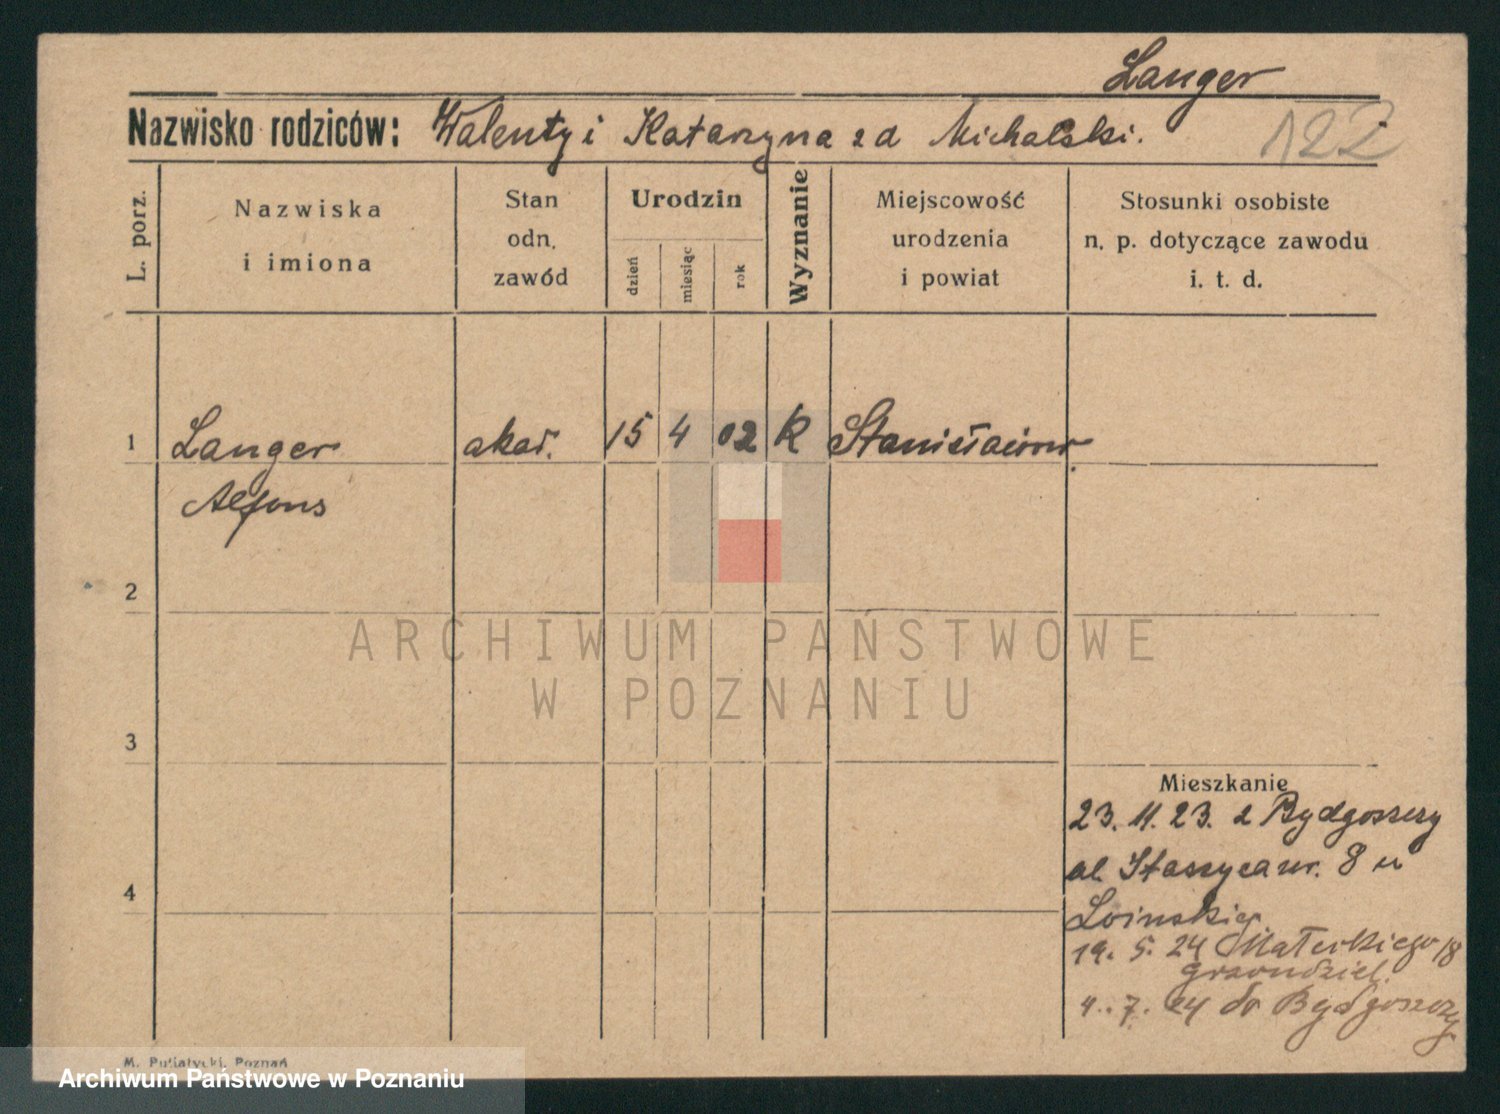 Langer
Nazwisko rodziców: Walenty i Katarzyna z d Michalski.
122
L. porz.
Nazwiska
i imiona
Stan
odn.
zawód
Urodzin
dzień
miesiąc
rok
Wyznanie
Miejscowość
urodzenia
i powiat
Stosunki osobiste
n. p. dotyczące zawodu
i. t. d.
1 Langer akad. 15 4 02 K Stanisławow
Alfons
2
ARCHIWUM PAŃSTWOWE
W POZNANIU
3
Mieszkanie
23. 11. 23. z Bydgoszczy
4
al. Staszyca nr. 8 u
19. 5. 24 18
4. 7. 24 do Bydgoszczy
M. Putiatycki, Poznań
Archiwum Państwowe w Poznaniu